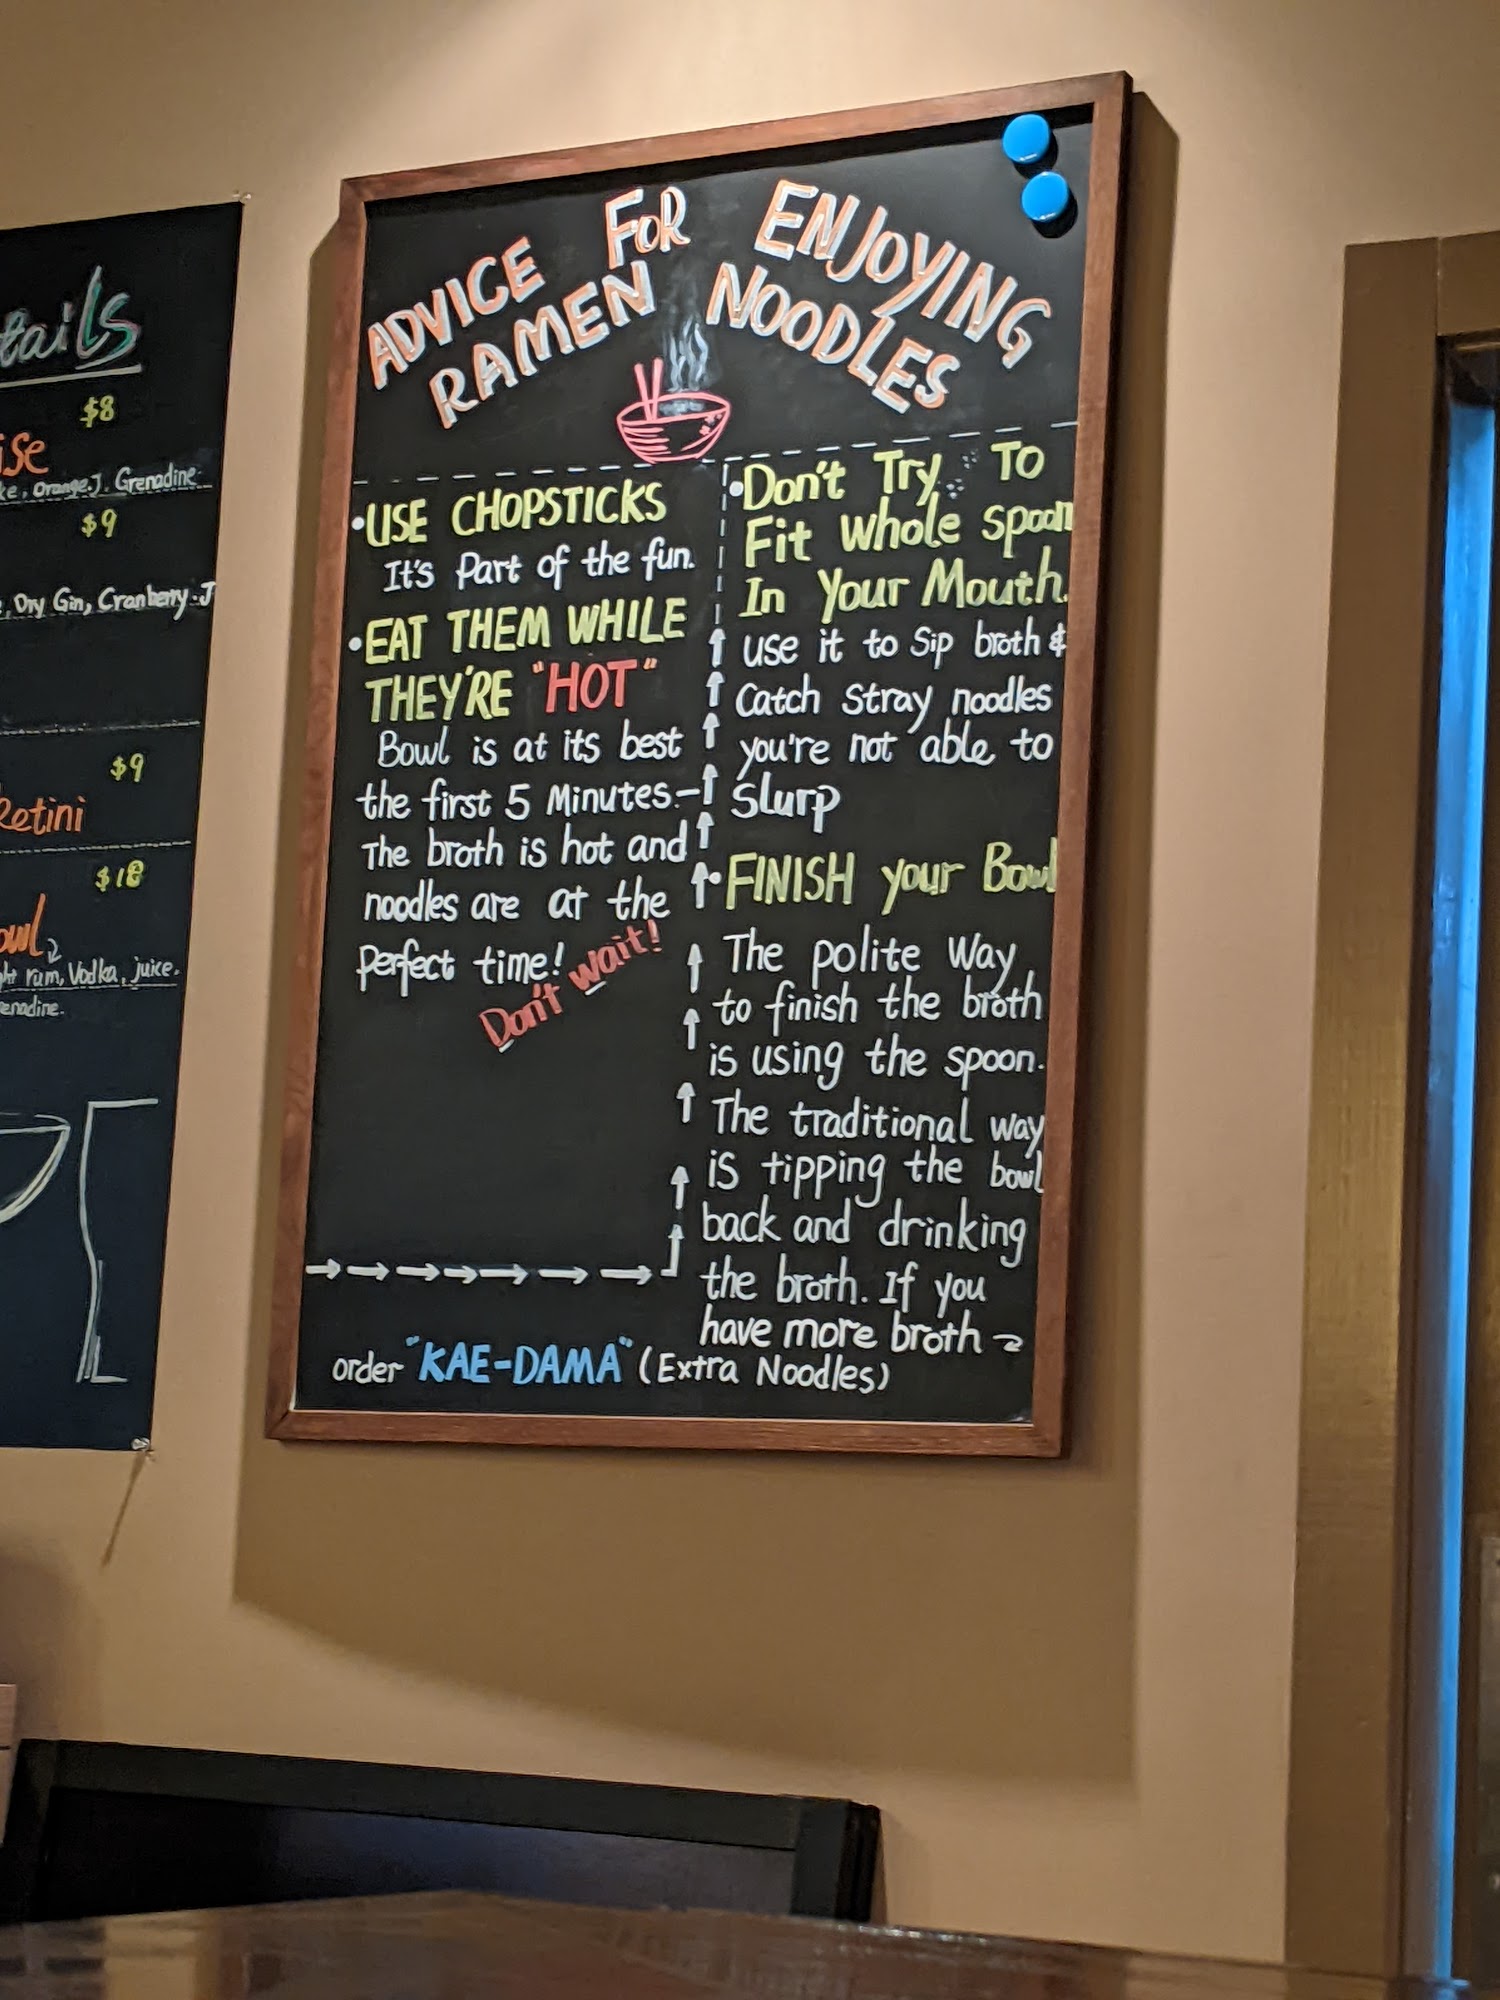 tails
$8
ise
ke, Orange.J. Grenadine
$9
, Dry Gin, Cranberry.J
$9
ketini
$18
owl
ght rum, Vodka, juice.
enadine.
ADVICE FOR ENJOYING
RAMEN NOODLES
•USE CHOPSTICKS
It's Part of the fun.
•EAT THEM WHILE
THEY'RE "HOT"
Bowl is at its best
the first 5 Minutes.–
The broth is hot and
noodles are at the
perfect time!
Don't wait!
•Don't Try To
Fit whole spoon
In your Mouth.
use it to Sip broth &
Catch Stray noodles
you're not able to
Slurp
•FINISH your Bowl
The polite Way
to finish the broth
is using the spoon.
The traditional way
is tipping the bowl
back and drinking
the broth. If you
have more broth
order "KAE-DAMA" (Extra Noodles)